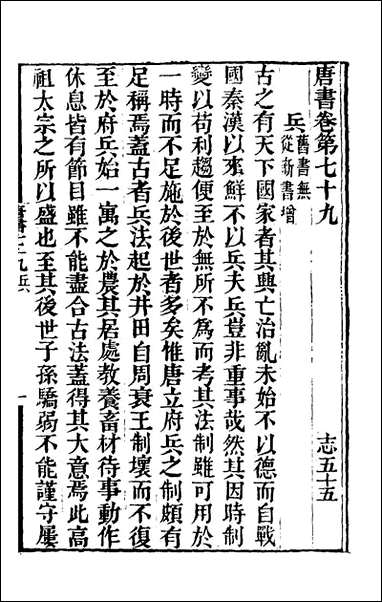 唐書卷第七十九
志五十五
兵 舊書無
從新書增
古之有天下國家者其興亡治亂未始不以德而自戰
國秦漢以來鮮不以兵夫兵豈非重事哉然其因時制
變以苟利趨便至於無所不為而考其法制雖可用於
一時而不足施於後世者多矣惟唐立府兵之制頗有
足稱焉蓋古者兵法起於井田自周衰王制壞而不復
至於府兵始一寓之於農其居處教養畜材待事動作
休息皆有節目雖不能盡合古法蓋得其大意焉此高
祖太宗之所以盛也至其後世子孫驕弱不能謹守屢
一